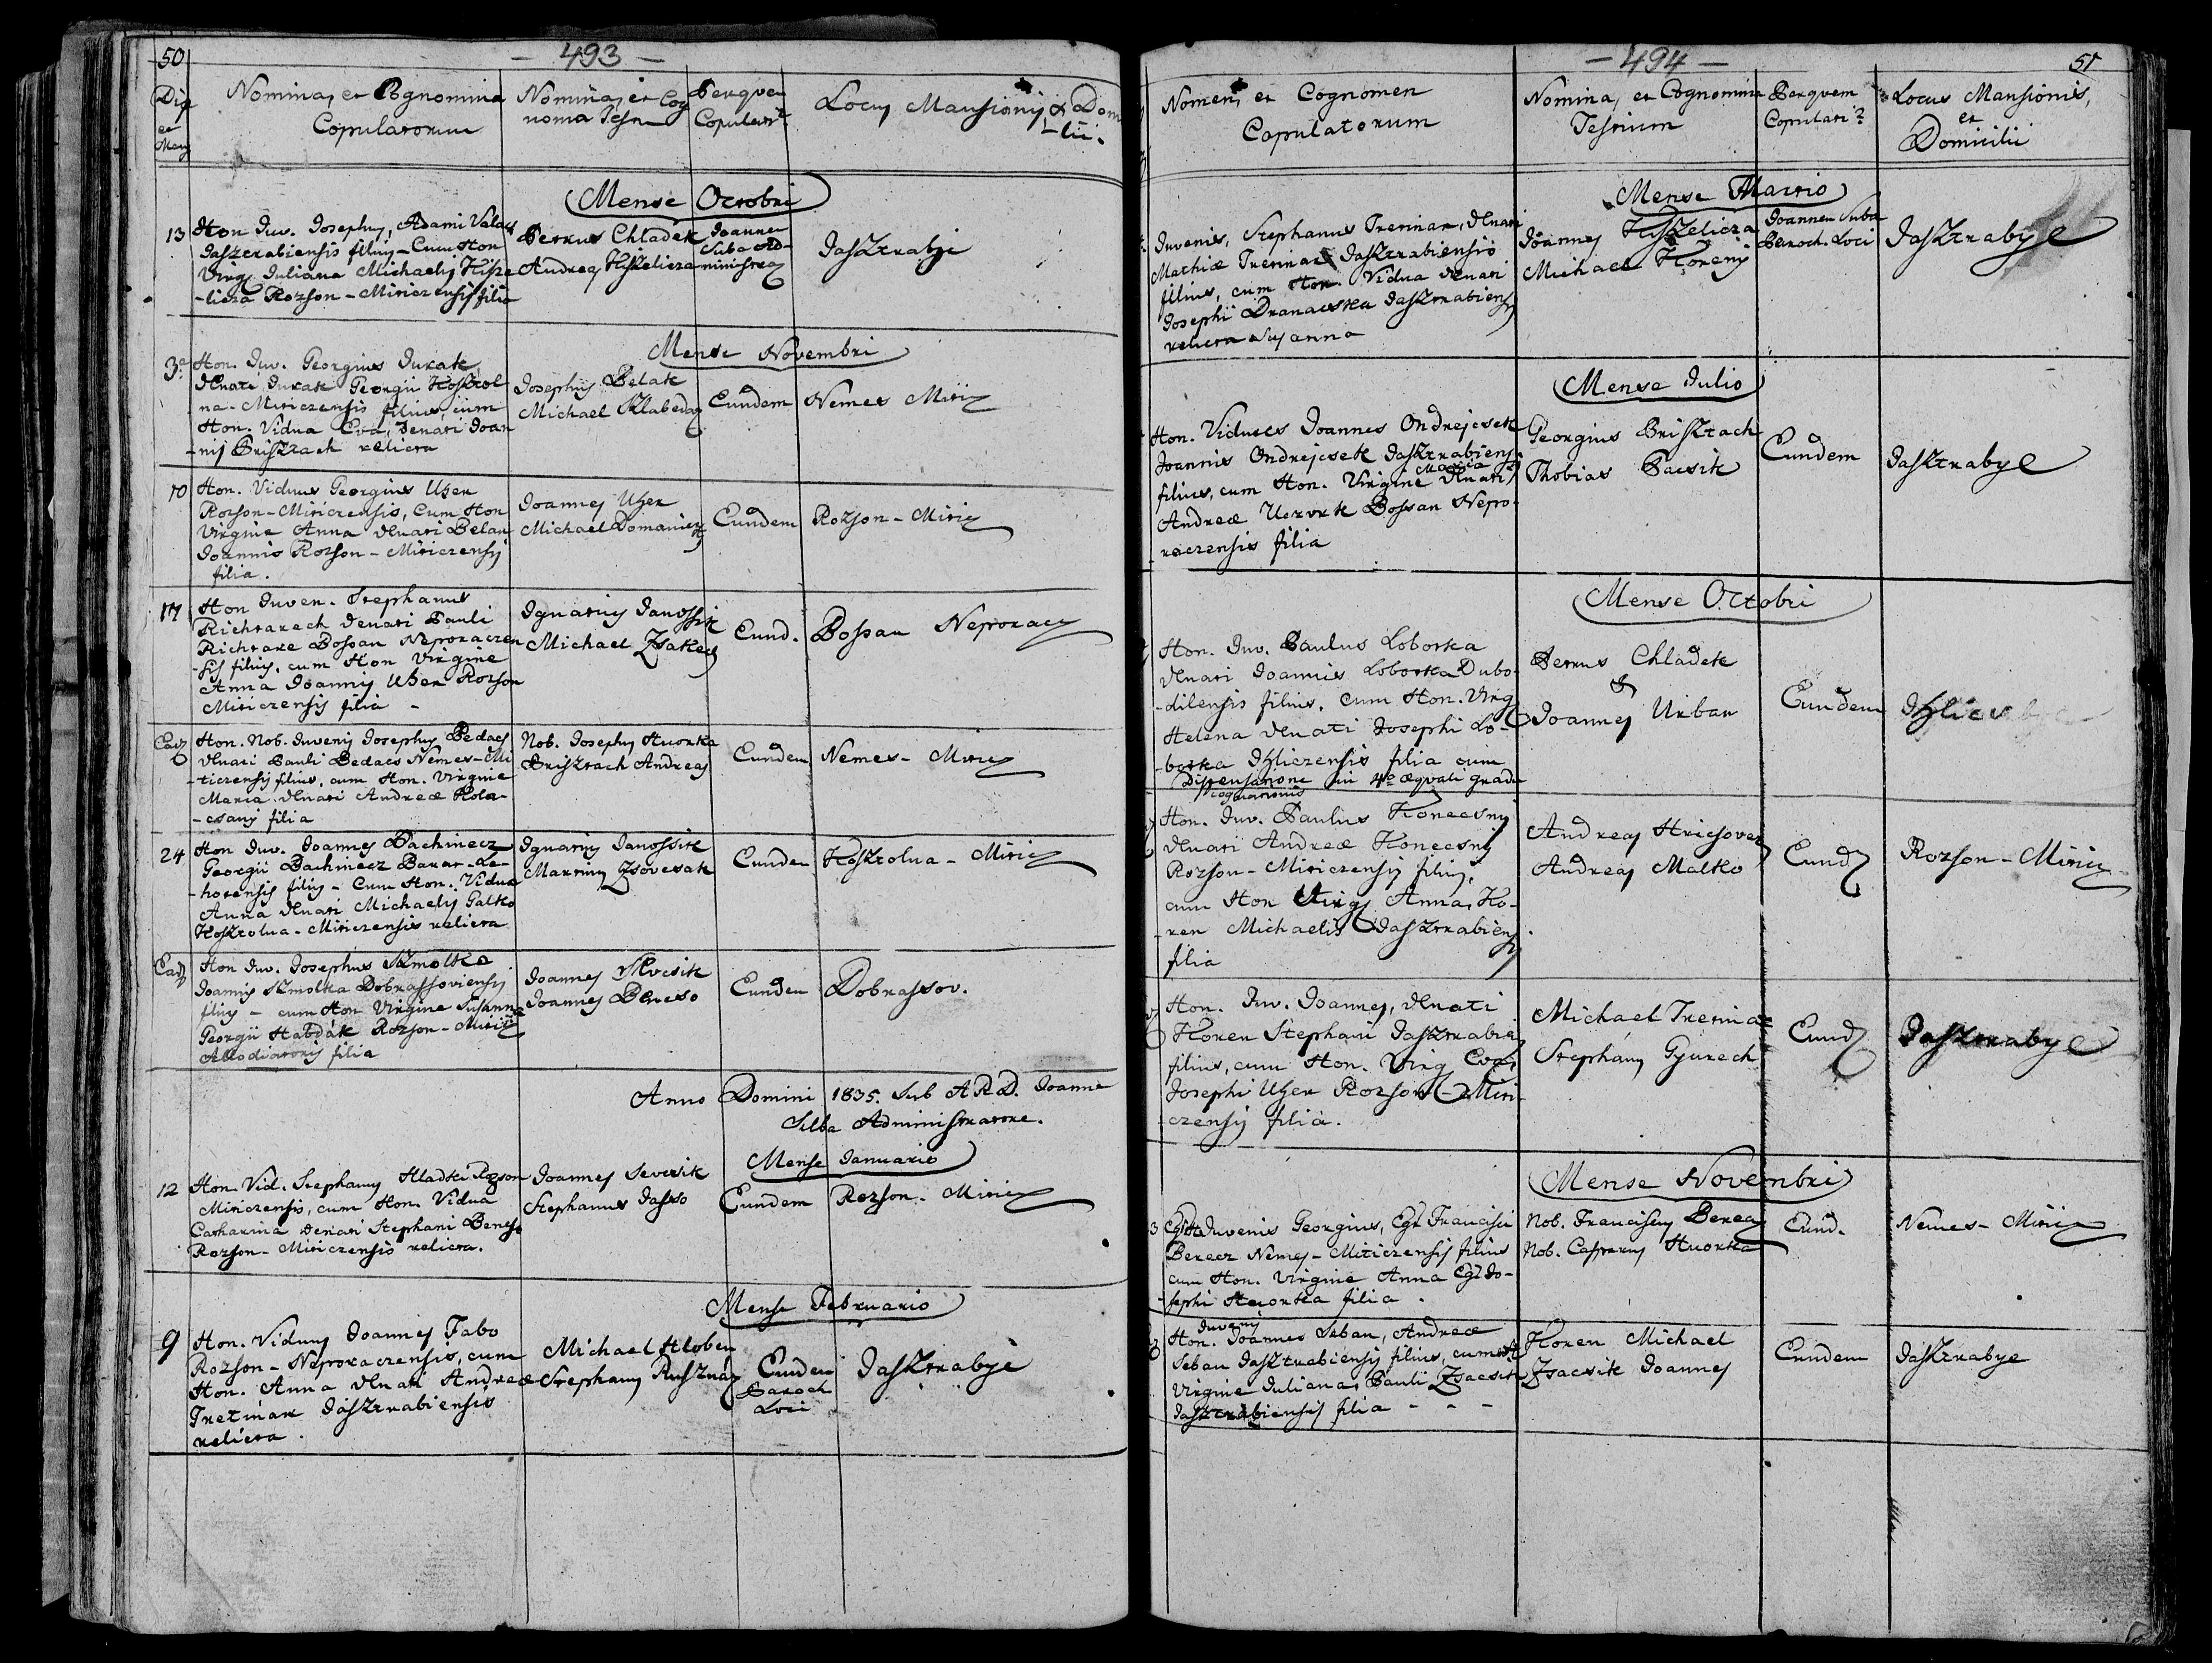 50
— 493 —
Die et Mens
Nomina, et Cognomina Copulatorum
Nomina, et Cognomina Test
Per quem Copulati
Locus Mansionis, et Domicilii.
Mense Octobri
13
Hon Juv. Josephus, Adami Valach
Jaszrabiensis filius – Cum Hon
Virg. Juliana Michaelis Kisze
-licza Rozson – Miticzensis filia
Petrus Chladek
Andreas Kiszelicza
Joannem
Suba Ad-
ministra
Jasztrabje
Mense Novembri
3a
Hon. Juv. Georgius Jurak,
Denati Jurak Georgii Kosztol
na-Miticzensis filius, cum
Hon. Vidua Eva, Denati Joan
-nis Brisztach relicta
Josephus Belak
Michael Klabeday
Eundem
Nemes Mitiz
10
Hon. Viduus Georgius Uher
Rozson-Miticzensis, Cum Hon
Virgine Anna denati Belan
Joannis Rozson – Miticzensis
filia.
Joannes Uher
Michael Domaniczky
Eundem
Rozson – Mitiz
17
Hon Juven. Stephanus
Richtarech denati Pauli
Richtare Bossan Neporaczen
-sis filius, cum Hon Virgine
Anna Joannis Uher Rozson
Miticzensis filia –
Ignatius Janossik
Michael Zsakey
Eund.
Bossan Neporacz
Ead
Hon. Nob. Juvenis Josephus Bedacs
denati Pauli Bedacs Nemes-Mi
-ticzensis filius, cum Hon. Virgine
Maria denati Andreæ Rola-
-csany filia
Nob. Josephus Huorka
Brisztach Andreas
Eundem
Nemes – Mitiz
24
Hon Juv. Joannes Bachinecz
Georgii Bachinecz Barat-Le-
-hotensis filius – Cum Hon. Vidua
Anna denati Michaelis Galko
Kosztolna – Miticzensis relicta
Ignatius Janossik
Martinus Zsovcsak
Eundem
Kosztolna – Mitiz
Ead
Hon Juv. Josephus Szmolka
Joannis Szmolka Dobrassoviensis
filius – cum Hon Virgine Susanna
Georgii Habdák Rozson – Mitiz
Allodiatoris filia
Joannes Sevcsik
Joannes Beneso
Eundem
Dobrassov.
Anno Domini 1835. Sub A R D. Joanne
Suba Administratore.
Mense Januario
12
Hon. Vid. Stephanus Hladki Rozson
Miticzensis, cum Hon. Vidua
Catharina denati Stephani Beneso
Rozson – Miticzensis relicta.
Joannes Sevcsik
Stephanus Jasso
Eundem
Rozson – Mitiz
Mense Februario
9
Hon. Viduus Joannes Fabo
Rozson – Neporaczensis, cum
Hon. Anna denati Andreæ
Tretinar Jasztrabiensis
relicta.
Michael Hloben
Stephanus Rusznáz
Eundem
Paroch
Loci
Jasztrabye
— 494 —
51
Nomen, et Cognomen
Copulatorum
Nomina, et Cognomina
Testium
Per quem
Copulati?
Locus Mansionis,
et
Domicilii
Mense Martio
Juvenis, Stephanus Tretinar, denati
Mathiæ Tretinar Jasztrabiensis
filius, cum Hon. Vidua denati
Josephi Dranacska Jasztrabiens
relicta Susanna
Joannes Kiszelicza
Michael Koreny
Joannem Suba
Paroch. Loci
Jasztrabye
Mense Julio
Hon. Viduus Joannes Ondrejcsek
Joannis Ondrejcsek Jasztrabiens
filius, cum Hon. Virgine Maria denati
Andreæ Uorvrk Bossan Nepo-
raczensis filia
Georgius Brisztach
Thobias Pacsik
Eundem
Jasztrabye
Mense Octobri
Hon. Juv. Paulus Loborka
denati Joannis Loborka Dubo-
-dilensis filius, cum Hon. Virg
Helena denati Josephi Lo-
-borka Iszliczensis filia cum
Dispensatione in 4to æquali gradu
cognationis
Petrus Chladek
&
Joannes Urban
Eundem
Hon. Juv. Paulus Konecsny
denati Andreæ Konecsny
Rozson – Miticzensis filius,
cum Hon Virg Anna, Ko-
-ren Michaelis Jasztrabiens
filia
Andreas Hricsovez
Andreas Matko
Eund
Rozson – Mitiz
Hon. Juv. Joannes, denati
Koren Stephani Jasztrabie
filius, cum Hon. Virg Eva,
Josephi Uher Rozson – Miti-
-czensis filia.
Michael Tretinar
Stephanus Gyurech
Eund
Jasztrabye
Mense Novembri
3
Juvenis Georgius, Egr Francisci
Berecz Nemes – Miticzensis filius
cum Hon. Virgine Anna Egr Jo-
-sephi Huorka filia.
Nob. Franciscus Berecz
Nob. Casparus Huorka
Eund.
Nemes – Mitiz
Juvenis
Hon. Joannes Seban, Andreæ
Seban Jasztrabiensis filius, cum H
Virgine Juliana, Pauli Zsacsik
Jasztrabiensis filia – – –
Koren Michael
Zsacsik Joannes
Eundem
Jasztrabye